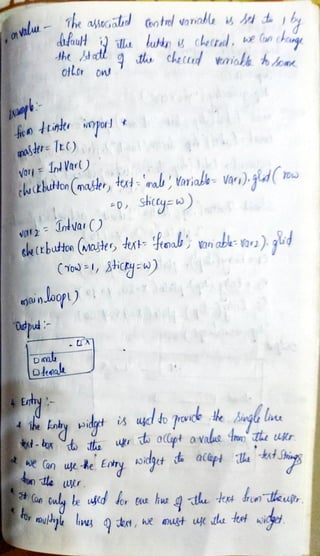 • onvalue - The associated control variable is set to 1 by
default if the button is checked. we can change
the state of the checked variable to some
other one
Example:-
from tkinter import *
master = Tk()
var1 = IntVar()
checkbutton (master, text = 'male', variable = var1).grid( row
=0, sticky=w)
var2 = Intvar ()
checkbutton (master, text= 'female', variable=var2).grid
(row=1, sticky=w)
mainloop()
Output:-
male
female
4. Entry:-
• The Entry widget is used to provide the single line
text-box to the user to accept a value from the user.
• we can use the Entry widget to accept the text strings
from the user.
• It can only be used for one line of the text from the user.
• for multiple lines of text, we must use the text widget.